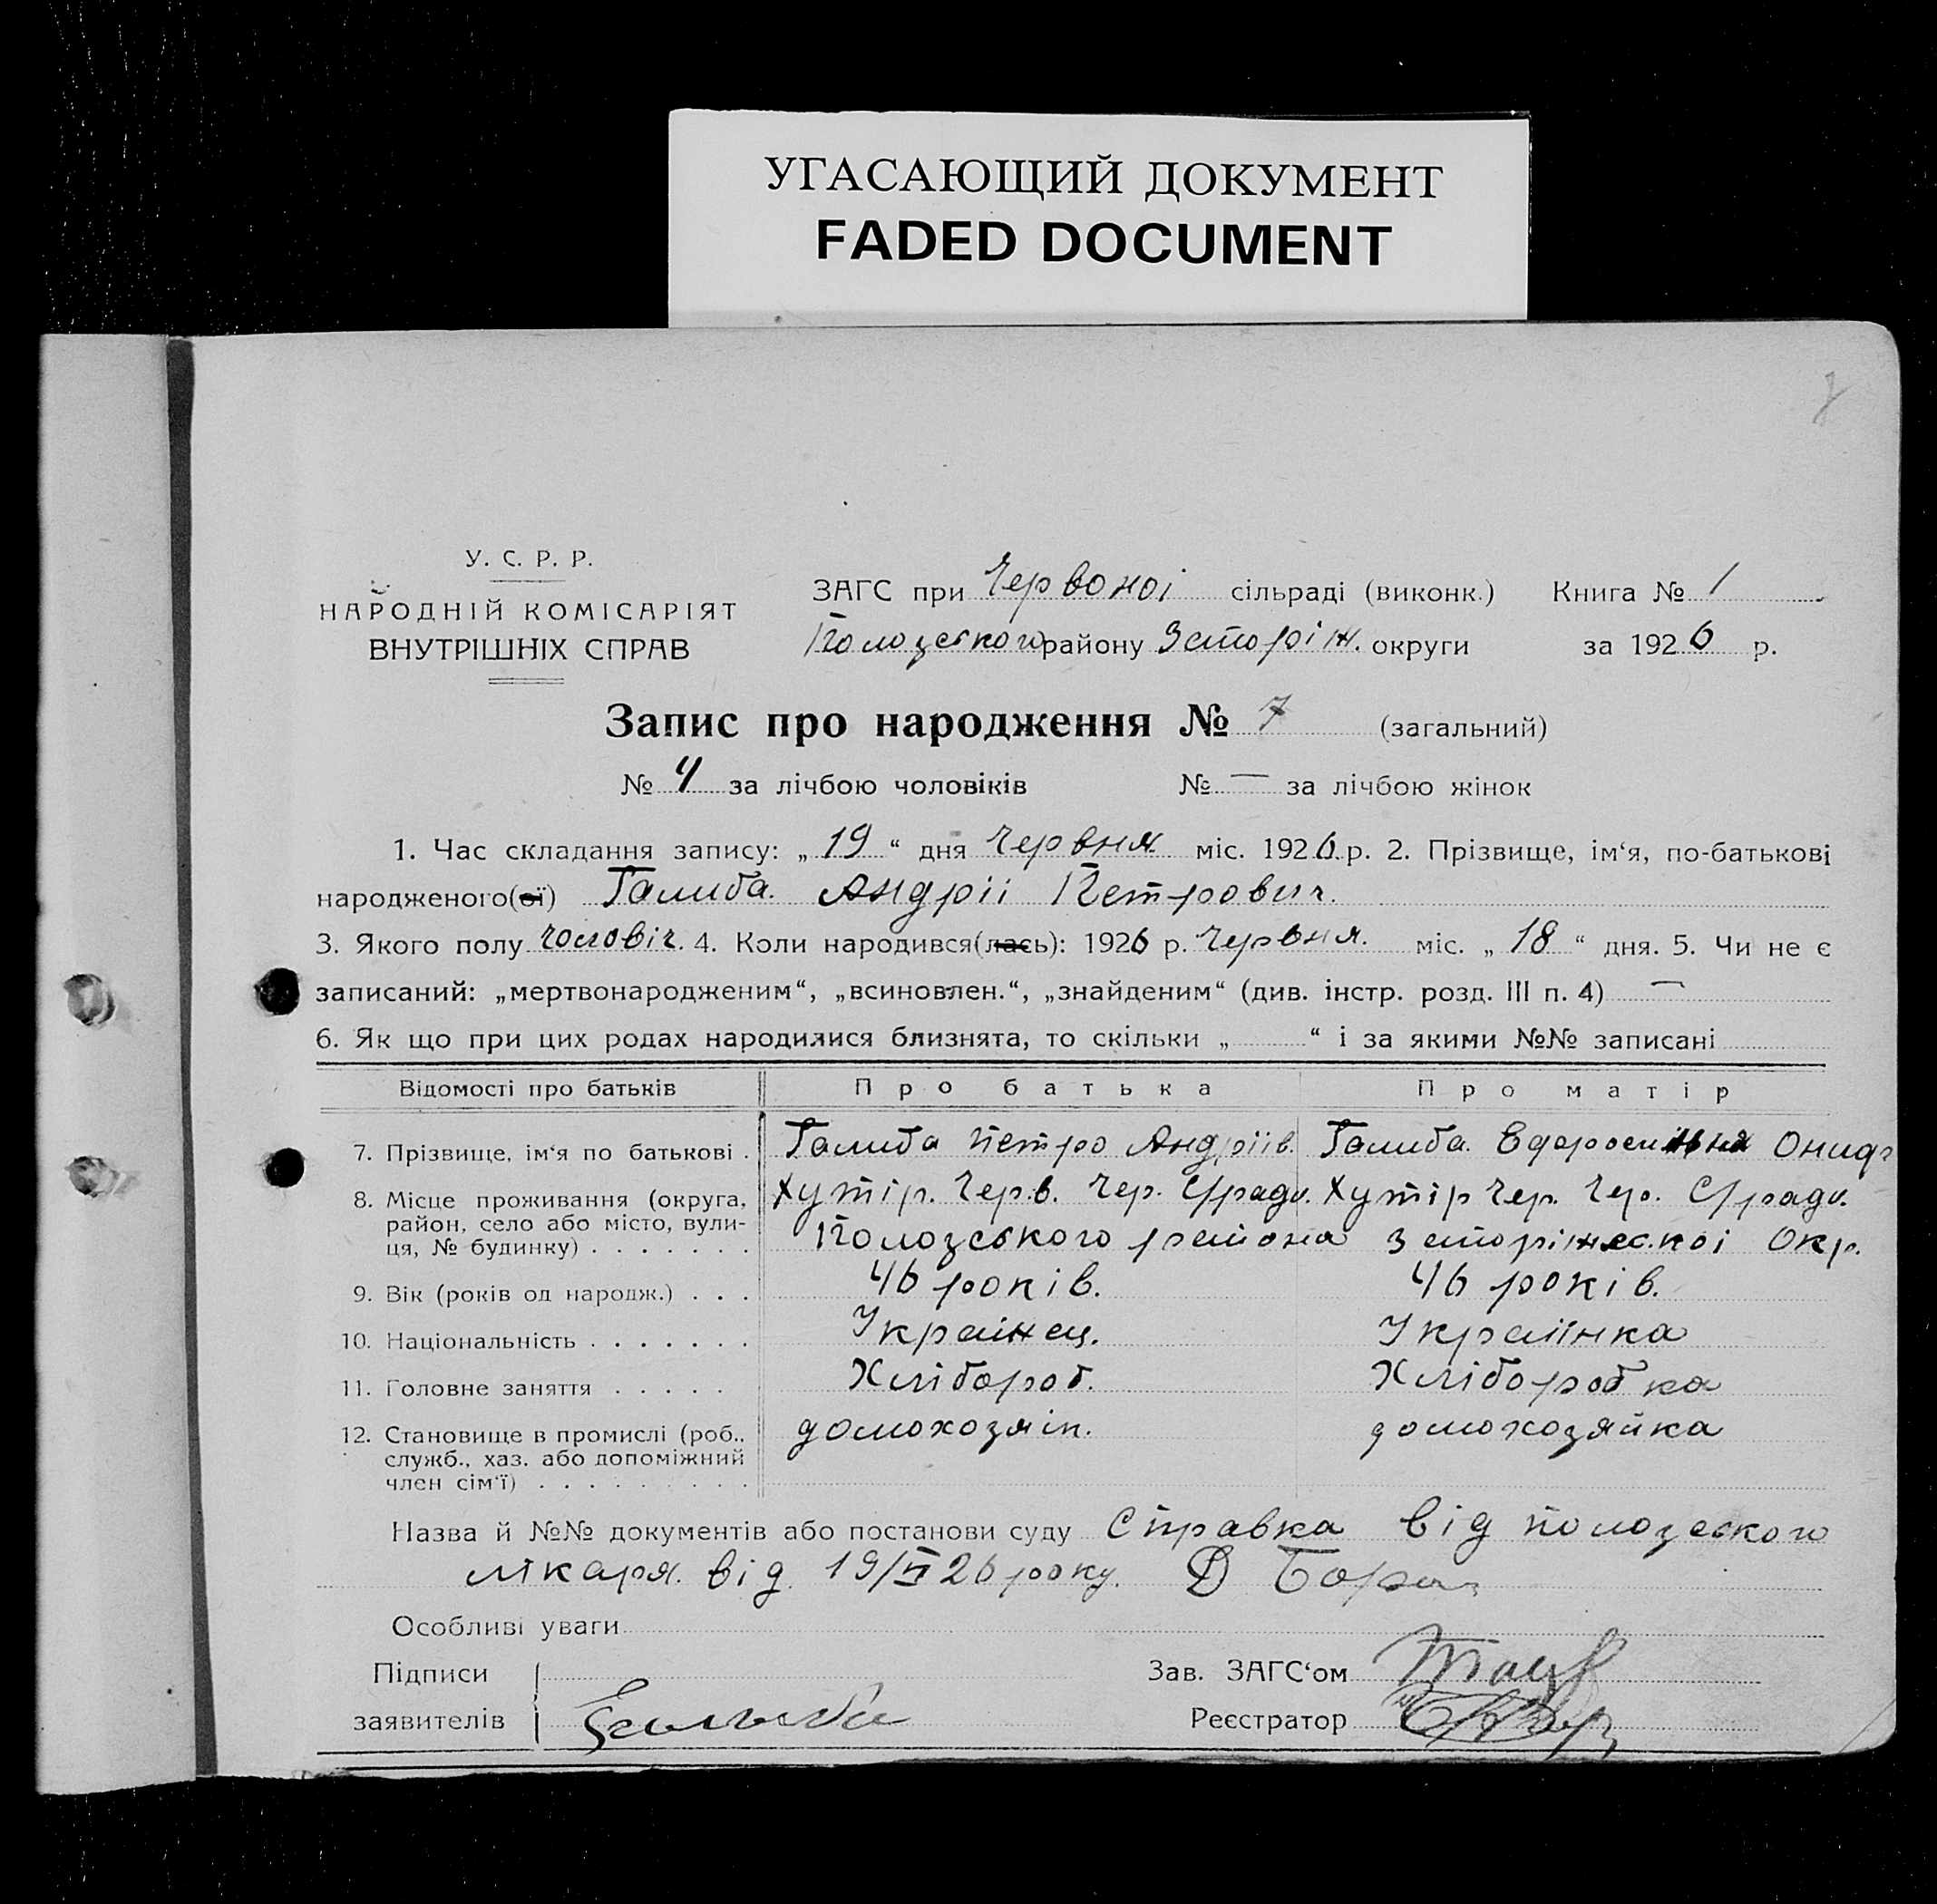 УГАСАЮЩИЙ ДОКУМЕНТ
FADED DOCUMENT
7
У. С. Р. Р.
НАРОДНІЙ КОМІСАРІЯТ
ВНУТРІШНІХ СПРАВ
ЗАГС при Червоноі сільраді (виконк.) Книга № 1
Пологського району Запоріж. округи за 1926 р.
Запис про народження № 7 (загальний)
№ 4 за лічбою чоловіків № — за лічбою жінок
1. Час складання запису: „19“ дня Червня міс. 1926 р. 2. Прізвище, ім‘я, по-батькові
народженого(ої) Галиба. Андріі Петрович.
3. Якого полу чоловіч. 4. Коли народився(лась): 1926 р. Червня. міс. „18“ дня. 5. Чи не є
записаний: „мертвонародженим“, „всиновлен.“, „знайденим“ (див. інстр. розд. III п. 4) —
6. Як що при цих родах народилися близнята, то скільки „ “ і за якими №№ записані
Відомості про батьків Про батька Про матір
7. Прізвище, ім‘я по батькові . Галиба Петро Андріів. Галиба.
8. Місце проживання (округа, Хутір. Черв. Чер. С/ради. Хутір Чер. Чер. С/ради.
район, село або місто, вули-
ця, № будинку) . . . . . . . района Окр.
9. Вік (років од народж.) . . . 46 років. 46 років.
10. Національність . . . . . . . Украінец. Украінка
11. Головне заняття . . . . . Хлібороб. Хліборобка
12. Становище в промислі (роб., домохозяін. домохозяйка
служб., хаз. або допоміжний
член сім‘ї) . . . . . . . . .
Назва й №№ документів або постанови суду Справка від
лікаря. від 19/VI 26 року.
Особливі уваги
Підписи Зав. ЗАГС‘ом
заявителів Галиба Реєстратор